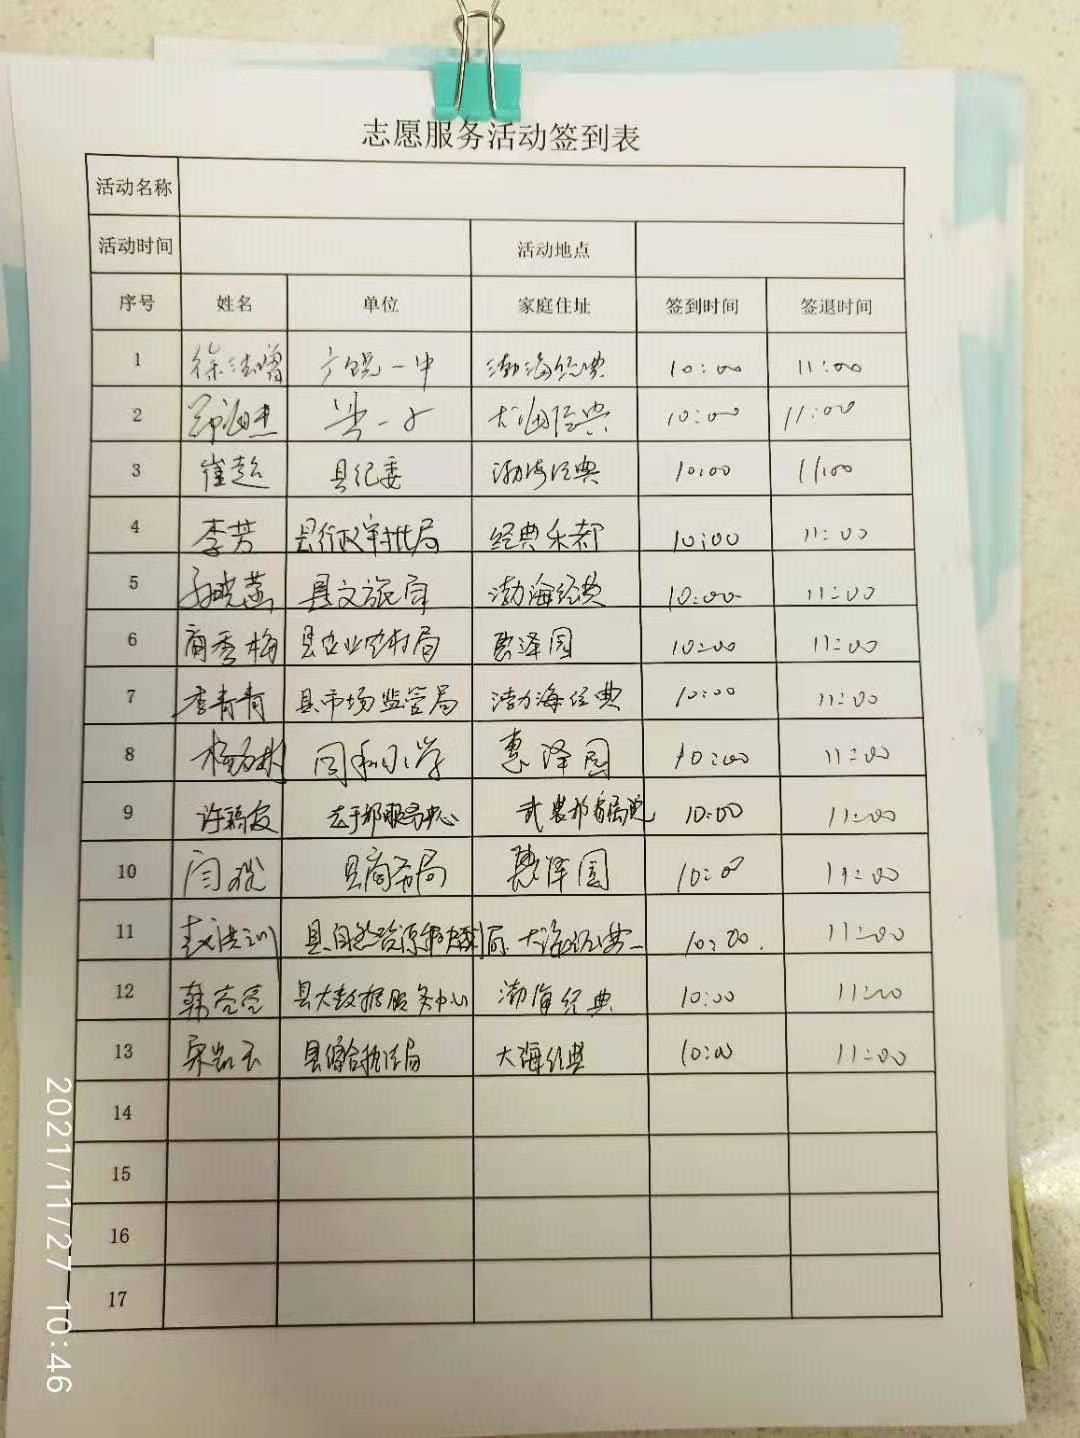 志愿服务活动签到表
活动名称
活动时间 活动地点
序号 姓名 单位 家庭住址 签到时间 签退时间
1 徐洪增 广饶一中 渤海经典 10:00 11:00
2 10:00 11:00
3 崔超 县纪委 渤海经典 10:00 11:00
4 李芳 县行政审批局 经典乐都 10:00 11:00
5 孙晓燕 县文旅局 渤海经典 10:00 11:00
6 商秀梅 县农业农村局 惠泽园 10:00 11:00
7 李青青 县市场监管局 渤海经典 10:00 11:00
8 同和小学 惠泽园 10:00 11:00
9 10:00 11:00
10 县商务局 惠泽园 10:00 11:00
11 赵洪训 县自然资源和规划局 大海经典 10:00 11:00
12 韩亮亮 县大数据服务中心 渤海经典 10:00 11:00
13 宋凯云 县综合执法局 大海经典 10:00 11:00
14
15
16
17
2021/11/27 10:46